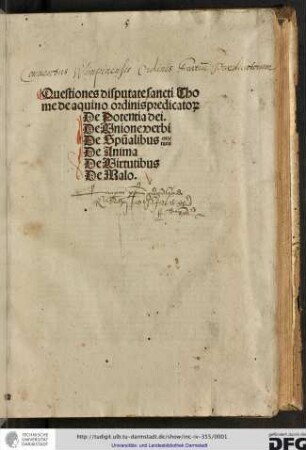 Conventus Wimpinensis Ordinis Fratrum Praedicatorum
Questiones disputate sancti Tho
me de aquino ordinis predicatoꝝ
De Potentia dei.
De Unione verbi
De Spũalibus
De Anima
De Virtutibus
De Malo.
TECHNISCHE
UNIVERSITÄT
DARMSTADT
http://tudigit.ulb.tu-darmstadt.de/show/inc-iv-355/0001
Universitäts- und Landesbibliothek Darmstadt
gefördert durch die
DFG